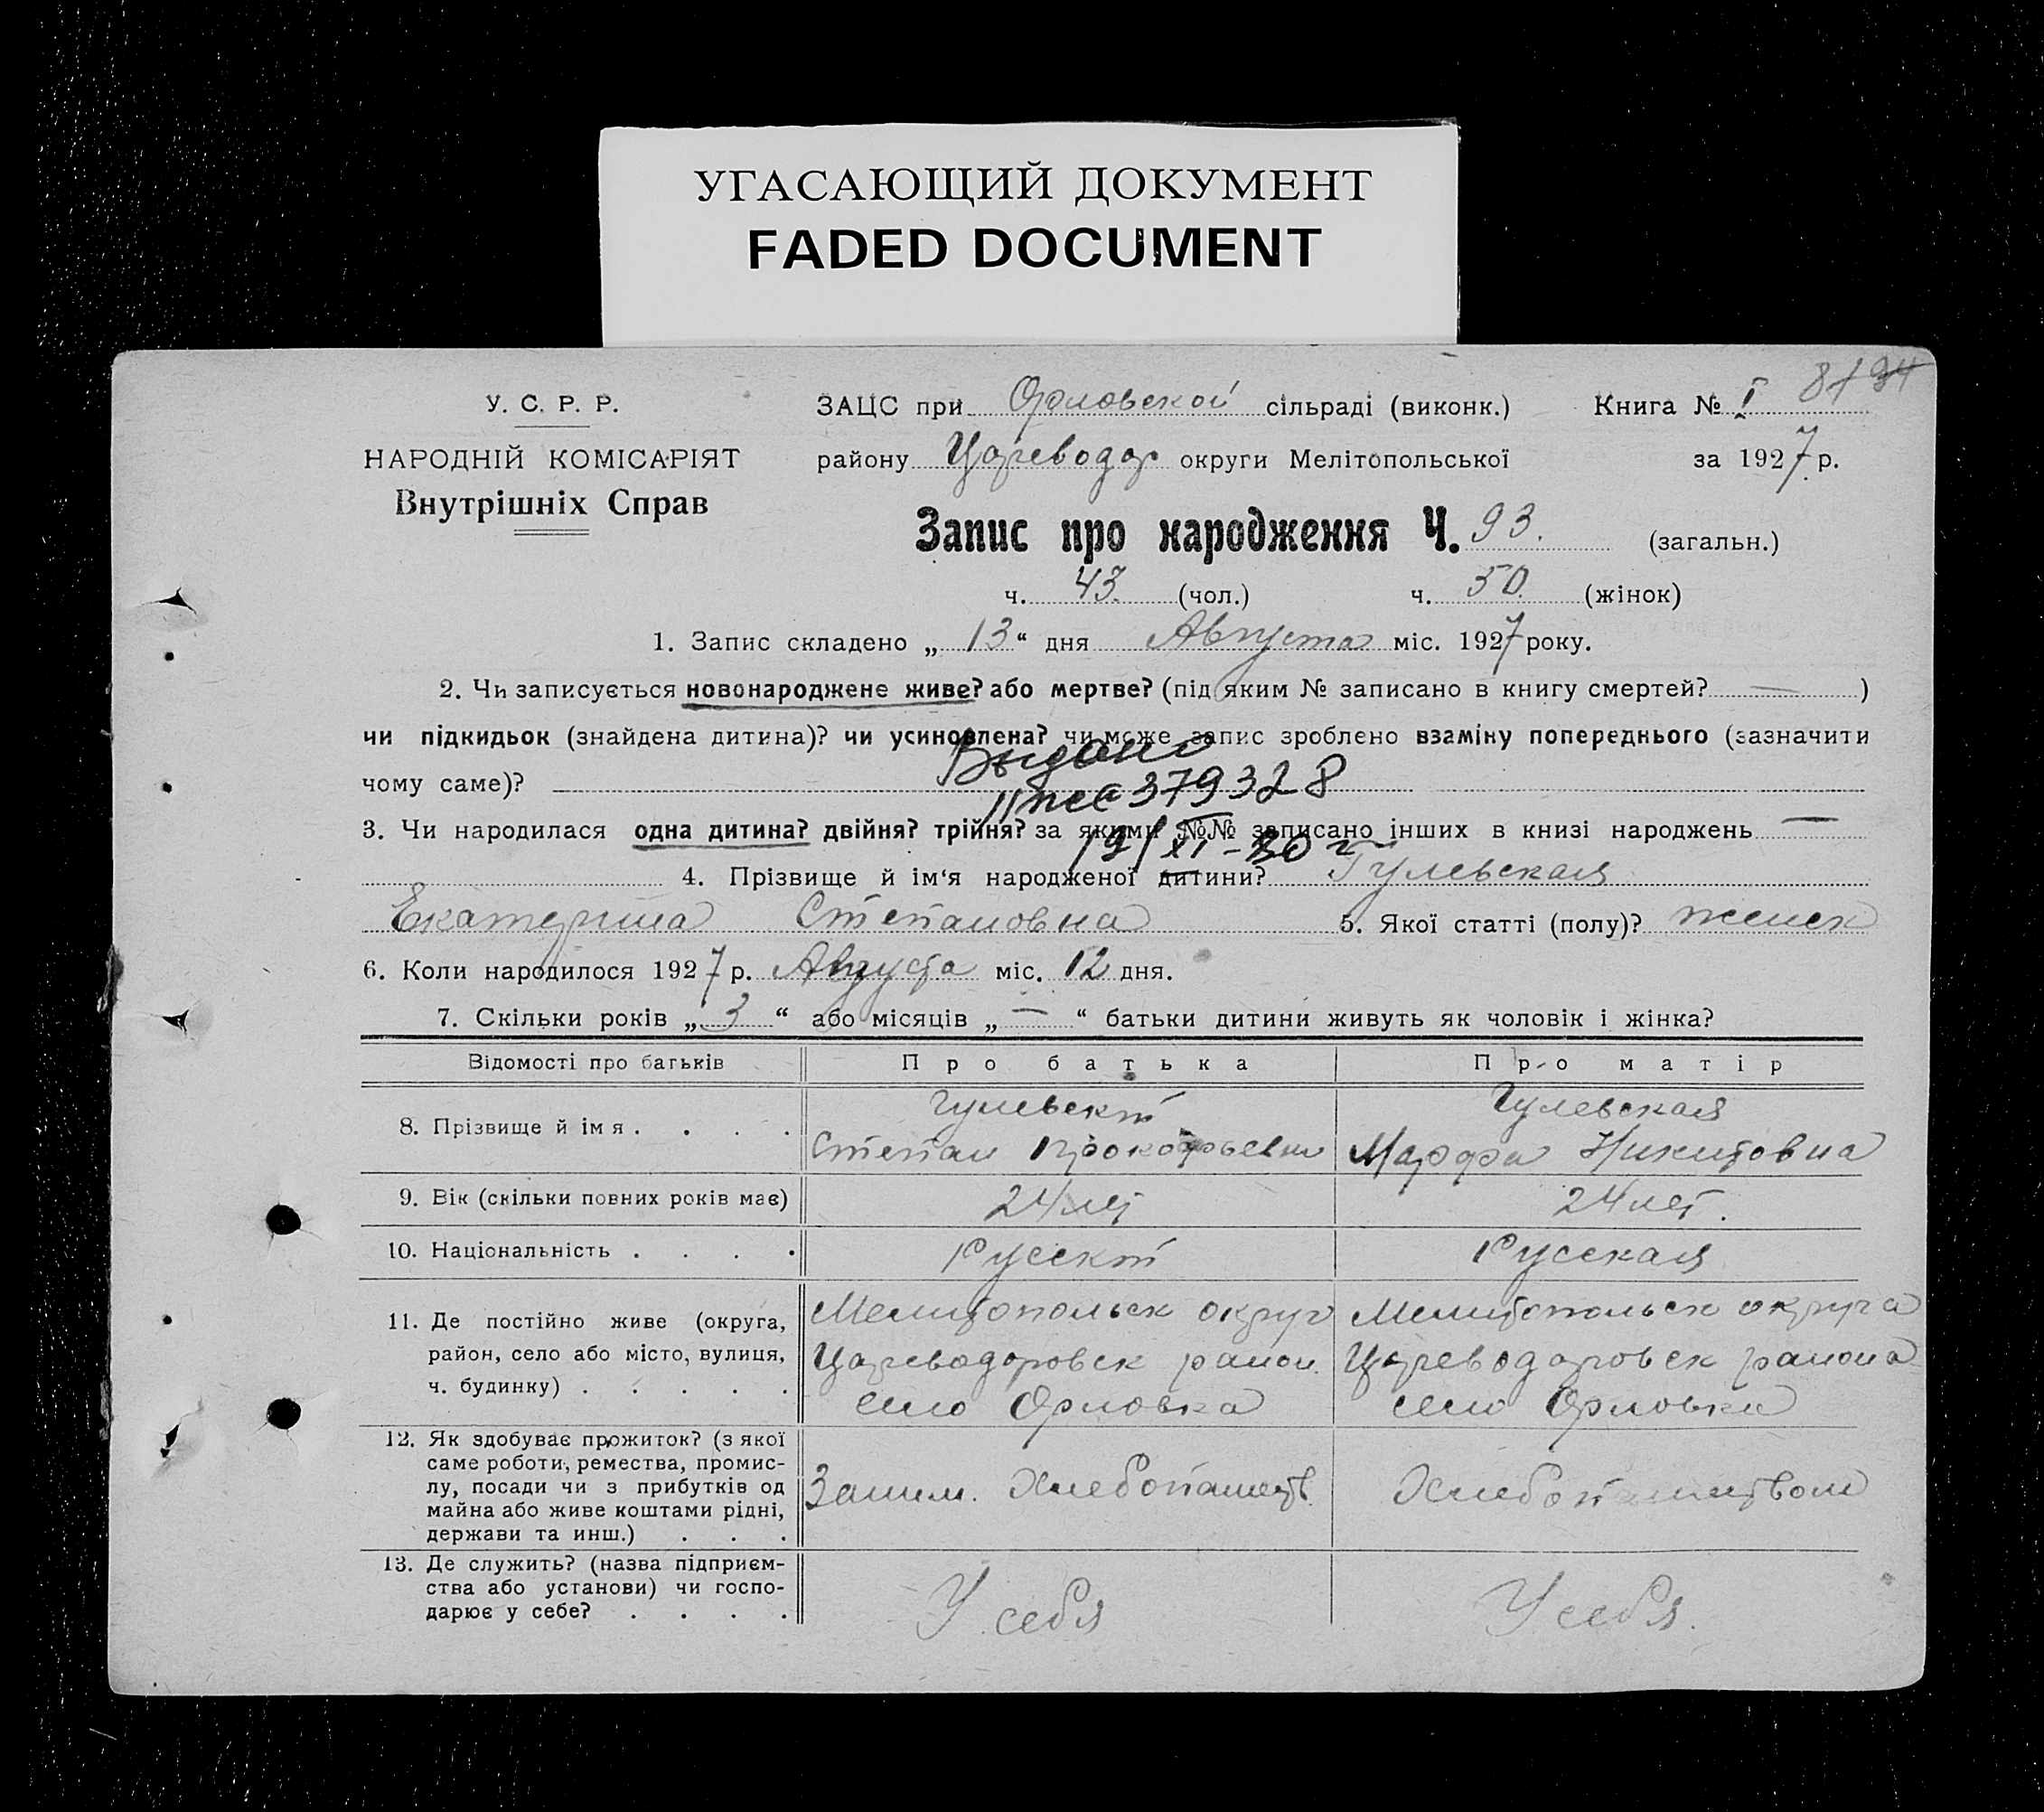 УГАСАЮЩИЙ ДОКУМЕНТ
FADED DOCUMENT
У. С. Р. Р.
НАРОДНІЙ КОМІСАРІЯТ
Внутрішніх Справ
ЗАЦС при Орловской сільраді (виконк.) Книга № I
району Цареводар округи Мелітопольської за 1927 р.
Запис про народження Ч. 93. (загальн.)
ч. 43. (чол.) ч. 50. (жінок)
1. Запис складено „ 13 “ дня Августа міс. 1927 року.
2. Чи записується новонароджене живе? або мертве? (під яким № записано в книгу смертей? — )
чи підкидьок (знайдена дитина)? чи усиновлена? чи може запис зроблено взаміну попереднього (зазначити
чому саме)?
Выдано
379328
3. Чи народилася одна дитина? двійня? трійня? за якими №№ записано інших в книзі народжень —
19/XI-30 г
4. Прізвище й ім‘я народженої дитини? Гулевская
Екатерина Степановна 5. Якої статті (полу)? женск
6. Коли народилося 1927 р. Августа міс. 12 дня.
7. Скільки років „ 3 “ або місяців „ — “ батьки дитини живуть як чоловік і жінка?
Відомості про батьків Про батька Про матір
8. Прізвище й імя . . . .
Гулевский
Степан Прокофьевич
Гулевская
Марфа Никитовна
9. Вік (скільки повних років має) 24 лет 24 лет.
10. Національність . . . . Русский Русская
11. Де постійно живе (округа,
район, село або місто, вулиця,
ч. будинку) . . . . .
Мелитопольск округ
Цареводаровск район
село Орловка
Мелитопольск округа
Цареводаровск района
село Орловка
12. Як здобуває прожиток? (з якої
саме роботи, ремества, промис-
лу, посади чи з прибутків од
майна або живе коштами рідні,
держави та инш.) . . .
Заним. Хлебопашеств.
Хлебопашеством
13. Де служить? (назва підприєм-
ства або установи) чи госпо-
дарює у себе? . . . .
У себя
У себя.